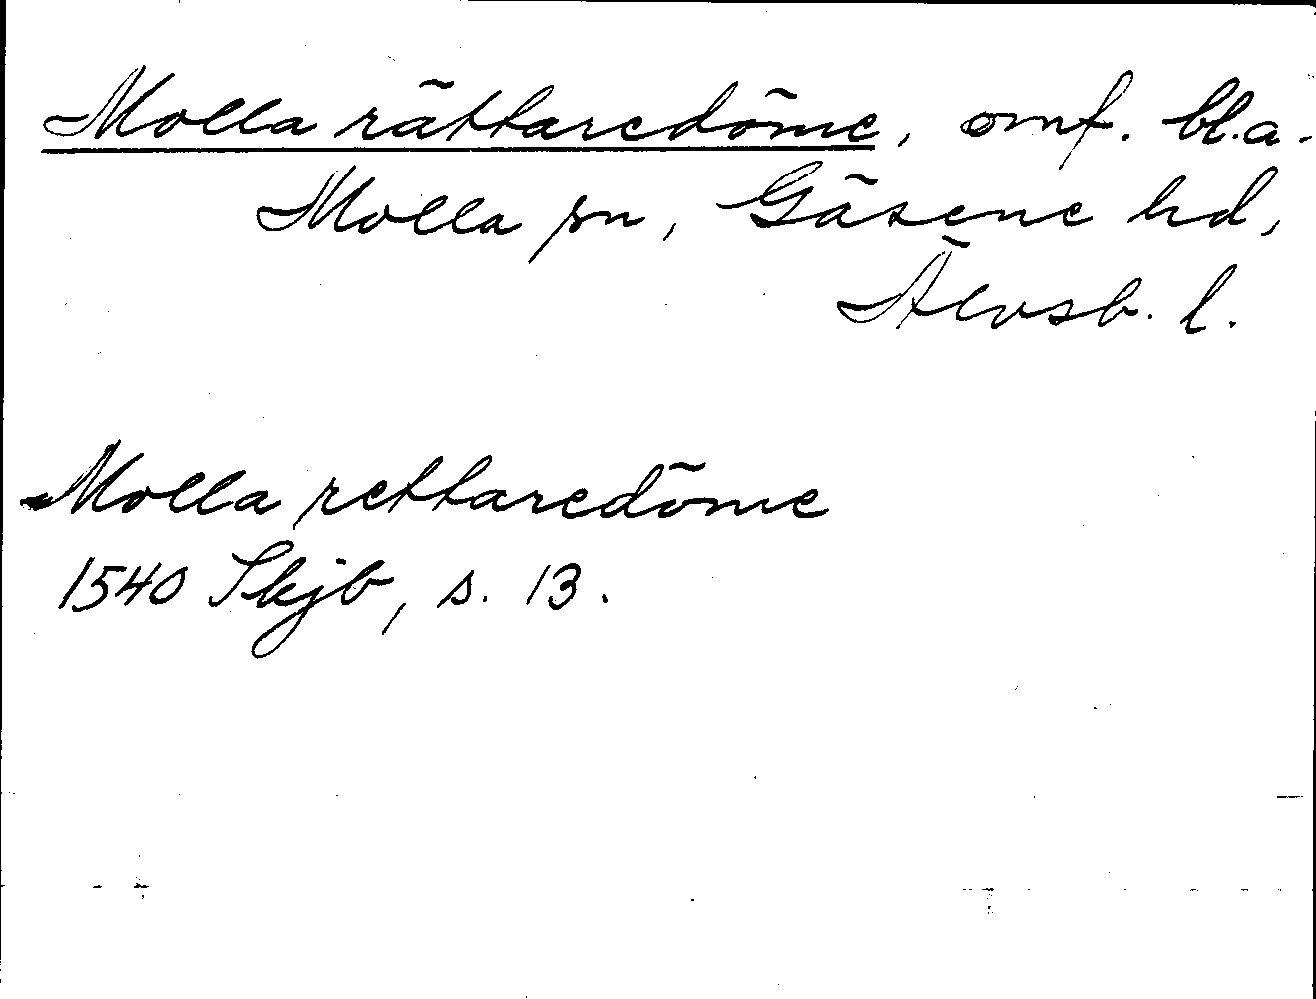 Molla rättaredöme, omf. bl.a.
Molla sn, Gäsene hd,
Älvsb. l.
Molla rettaredöme
1540 Skjb, s. 13.